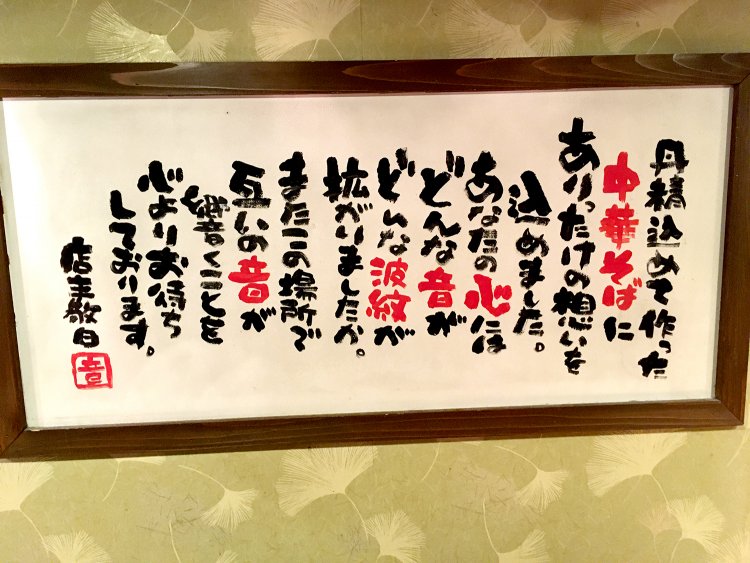 丹精込めて作った
中華そばに
ありったけの想いを
込めました。
あなたの心には
どんな音が
どんな波紋が
拡がりましたか。
またこの場所で
互いの音が
響くことを
心よりお待ち
しております。
店主敬白
音